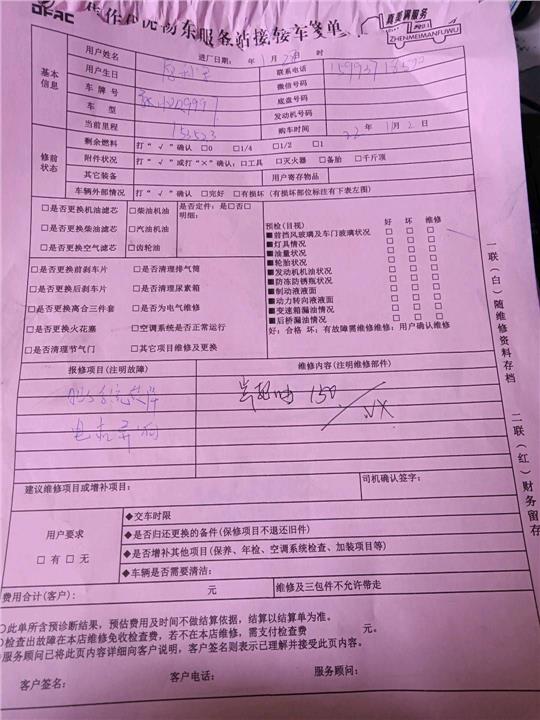 DFAC
优物东服务站接轻车笺单
真美满服务
ZHENMEIMANFUWU
进厂日期： 年 1月2日 时
基本信息
用户姓名
联系电话
用户生日
微信号码
车牌号
底盘号码
车型
发动机号码
当前里程
153523
购车时间
22年1月2日
修前状态
剩余燃料 打“√”确认 □0 □1/4 □1/2 □1
附件状况 打“√”或打“×”确认：□工具 □灭火器 □备胎 □千斤顶
其它装备
用户寄存物品
车辆外部情况 打“√”确认 □完好 □有损坏（有损坏部位标注有下表左图）
□是否更换机油滤芯 □柴油机油 是否定件：是□否□
□是否更换柴油滤芯 □汽油机油 明细：
□是否更换空气滤芯 □齿轮油
□是否更换前刹车片 □是否清理排气筒
□是否更换后刹车片 □是否清理尿素箱
□是否更换离合三件套 □是否为电气维修
□是否更换火花塞 □空调系统是否正常运行
□是否清理节气门 □其它项目维修及更换
预检(目视) 好 坏 维修
■前挡风玻璃及车门玻璃状况 □ □ □
■灯具情况 □ □ □
■油量状况 □ □ □
■轮胎状况 □ □ □
■发动机机油状况 □ □ □
■防冻防锈瓶状况 □ □ □
■制动液液面 □ □ □
■动力转向液液面 □ □ □
■变速箱漏油情况 □ □ □
■后桥漏油情况 □ □ □
好：合格 坏：有故障需维修维修：用户确认维修
报修项目(注明故障)
维修内容(注明维修部件)
150
建议维修项目或增补项目：
司机确认签字：
用户要求
□有 □无
◆交车时限
◆是否归还更换的备件(保修项目不退还旧件)
◆是否增补其他项目(保养、年检、空调系统检查、加装项目等)
◆车辆是否需要清洁：
费用合计(客户)： 元
维修及三包件不允许带走
〇此单所含预诊断结果，预估费用及时间不做结算依据，结算以结算单为准。
〇检查出故障在本店维修免收检查费，若不在本店维修，需支付检查费 元。
服务顾问已将此页内容详细向客户说明，客户签名则表示已理解并接受此页内容。
客户签名： 客户电话： 服务顾问：
一联（白）随维修资料存档
二联（红）财务留存